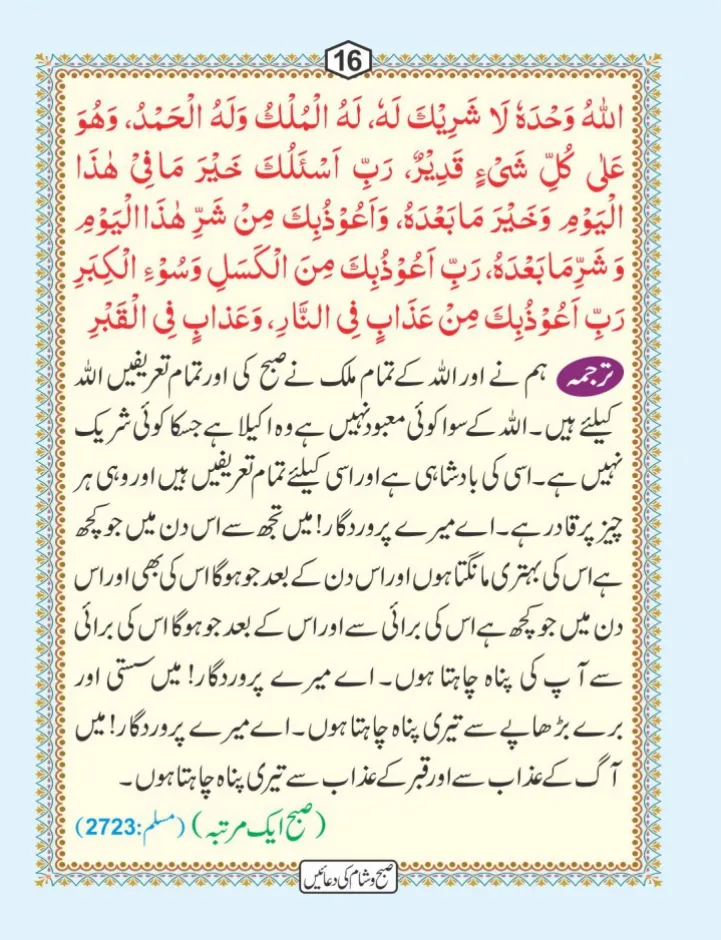 16
اللهُ وَحْدَهٗ لَا شَرِيْكَ لَهٗ، لَهُ الْمُلْكُ وَلَهُ الْحَمْدُ، وَهُوَ
عَلٰى كُلِّ شَیْءٍ قَدِيْرٌ، رَبِّ اَسْئَلُكَ خَيْرَ مَا فِیْ هٰذَا
الْيَوْمِ وَخَيْرَ مَا بَعْدَهٗ، وَاَعُوْذُبِكَ مِنْ شَرِّ هٰذَا الْيَوْمِ
وَشَرِّ مَا بَعْدَهٗ، رَبِّ اَعُوْذُبِكَ مِنَ الْكَسَلِ وَسُوْءِ الْكِبَرِ
رَبِّ اَعُوْذُبِكَ مِنْ عَذَابٍ فِی النَّارِ، وَعَذابٍ فِی الْقَبْرِ
ترجمہ ہم نے اور اللہ کے تمام ملک نے صبح کی اور تمام تعریفیں اللہ
کیلئے ہیں۔ اللہ کے سوا کوئی معبود نہیں ہے وہ اکیلا ہے جسکا کوئی شریک
نہیں ہے۔ اسی کی بادشاہی ہے اور اسی کیلئے تمام تعریفیں ہیں اور وہی ہر
چیز پر قادر ہے۔ اے میرے پروردگار! میں تجھ سے اس دن میں جو کچھ
ہے اس کی بہتری مانگتا ہوں اور اس دن کے بعد جو ہوگا اس کی بھی اور اس
دن میں جو کچھ ہے اس کی برائی سے اور اس کے بعد جو ہوگا اس کی برائی
سے آپ کی پناہ چاہتا ہوں۔ اے میرے پروردگار! میں سستی اور
برے بڑھاپے سے تیری پناہ چاہتا ہوں۔ اے میرے پروردگار! میں
آگ کے عذاب سے اور قبر کے عذاب سے تیری پناہ چاہتا ہوں۔
(صبح ایک مرتبہ) (مسلم:2723)
صبح و شام کی دعائیں